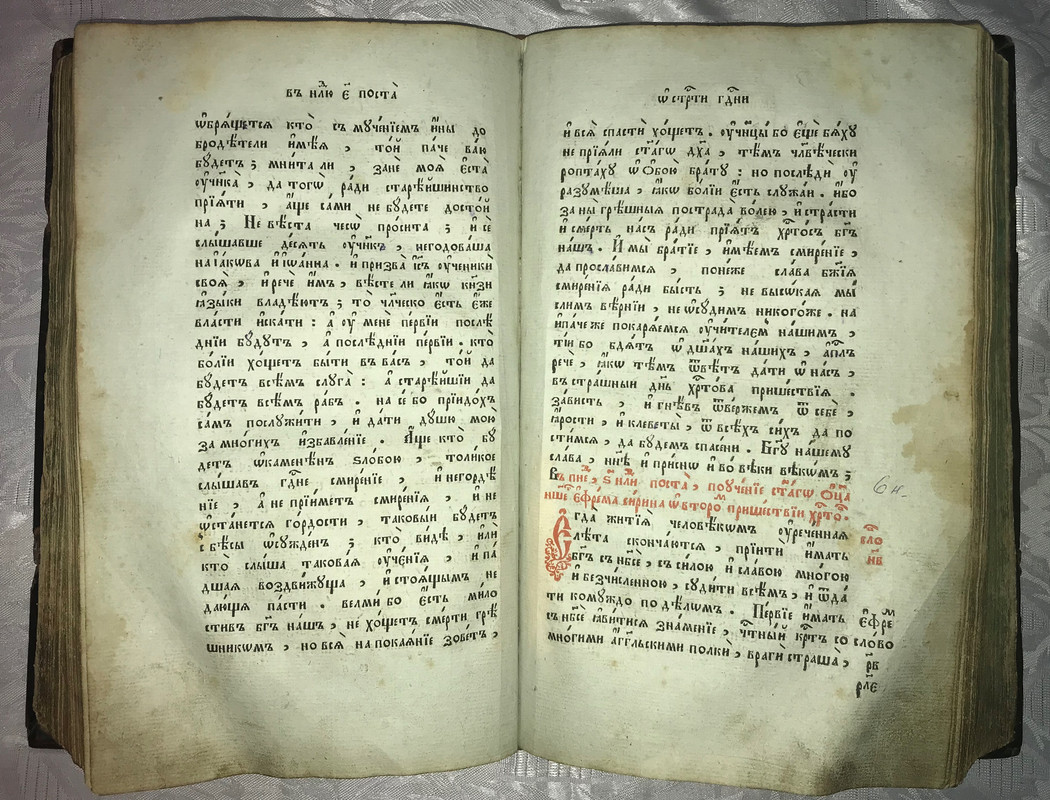 въ нл҃ю є҃ поста̀
ѡ҆брѧ́щетсѧ кто̀ съ мꙋче́нїемъ и҆́ны до
бродѣ́тели и҆мѣ́ѧ , то́й паче ва́ю
бꙋ́детъ ; мни́та ли , занѐ моѧ̀ є҆ста̀
ᲂу҆чн҃ка , да тогѡ̀ ра́ди старѣ́йшинство
прїѧ́ти , а҆́ще са́ми не бꙋ́дете досто́й
на ; Не вѣ́ста чесѡ̀ про́сита ; и҆ сѐ
слы́шавше де́сѧть ᲂу҆чн҃къ , негодова́ша
на і҆а́кѡва и҆ і҆ѡа́нна . и҆ призва̀ і҆с҃ъ ᲂу҆ченики̑
своѧ̑ , и҆ речѐ и҆̀мъ , вѣ́сте ли ꙗ҆́кѡ кн҃ѕи
ꙗ҆зы́ки владѣ́ютъ ; то̀ чл҃ческо є҆́сть є҆́же
вла́сти и҆ска́ти : а҆ ᲂу҆ менѐ пе́рвїи послѣ́
днїи бꙋ́дꙋтъ , а҆ послѣ́днїи пе́рвїи . кто̀
бо́лїи хо́щетъ бы́ти въ ва́съ , то́й да
бꙋ́детъ всѣ́мъ слꙋга̀ : а҆ старѣ́йшїи да
бꙋ́детъ всѣ́мъ ра́бъ . на сѐ бо прїидо́хъ
са́мъ послꙋжи́ти , и҆ да́ти дꙋ́шꙋ мою̀
за мно́гихъ и҆збавле́нїе . А҆́ще кто̀ бꙋ́
детъ ѡ҆каменѣ́нъ ѕло́бою , толи́кое
слы́шавъ гд҃не смире́нїе , и҆ негордѣ́
нїе , а҆ не прїи́метъ смире́нїѧ , и҆ не
ѡ҆ста́нетсѧ го́рдости , таковы́й бꙋ́детъ
с бѣ́сы ѡ҆сꙋжде́нъ ; кто̀ ви́дѣ , и҆лѝ
кто̀ слы́ша такова́ѧ ᲂу҆че́нїѧ , и҆ па́
дшаѧ воздви́жꙋща , и҆ стоѧ́щымъ не
даю́щѧ па́сти . велми́ бо є҆́сть ми́ло
стивъ бг҃ъ на́шъ , не хо́щетъ сме́рти грѣ́
шникѡмъ , но всѧ̑ на покаѧ́нїе зове́тъ ,
ѡ҆ стрⷭ҇ти гдⷭ҇ни
и҆ всѧ̑ спастѝ хо́щетъ . ᲂу҆чн҃цы бо є҆щѐ бѧ́хꙋ
не прїѧ́ли ст҃а́гѡ дх҃а , тѣ́мъ чл҃вѣ́чески
ропта́хꙋ ѡ҆ ѻ҆бо́ю бра́тꙋ : но послѣди́ ᲂу҆
разꙋмѣ́ша , ꙗ҆́кѡ бо́лїи є҆́сть слꙋжа́й . и҆́бо
за ны̀ грѣ́шныѧ пострада̀ во́лею , и҆ стра́сти
и҆ сме́рть на́съ ра́ди прїѧ́тъ хрⷭ҇то́съ бг҃ъ
на́шъ . И҆ мы̀ бра́тїе , и҆мѣ́емъ смире́нїе ,
да просла́вимсѧ , поне́же сла́ва бж҃їѧ
смире́нїѧ ра́ди бы́сть ; не высѡ́каѧ мы́
слимъ вѣ́рнїи , не ѡ҆сꙋ́димъ никого́же . на
и҆па́че же покарѧ́емсѧ ᲂу҆чи́телем на́шимъ ,
ті́и бо бдѧ́тъ ѡ҆ дш҃а́хъ на́шихъ , а҆пⷭ҇лъ
речѐ , ꙗ҆́кѡ тѣ́мъ ѿвѣ́тъ да́ти ѡ҆ на́съ ,
въ стра́шныи дн҃ь хрⷭ҇то́ва прише́ствїѧ .
за́висть , и҆ гнѣ́въ ѿве́ржемъ ѿ себѐ ,
ꙗ҆́рости , и҆ клеветы̀ , ѿ всѣ́хъ си́хъ да по
сти́мсѧ , да бꙋ́демъ спасе́ни . Бг҃ꙋ на́шемꙋ
сла́ва , нн҃ѣ и҆ при́снѡ и҆ во вѣ́ки вѣкѡ́мъ ;
Въ пнⷣе , ѕ҃ нⷣли поста̀ , поꙋче́нїе ст҃а́гѡ ѻ҆ц҃а̀
на́шегѡ є҆фре́ма си́рина ѡ҆ второⷨ прише́ствїи хрⷭ҇то́вѣ .
Є҆гда̀ житїѧ̀ человѣ́кѡмъ ᲂу҆рече́ннаѧ
лѣ́та сконча́ютсѧ , прїитѝ и҆́мать
бг҃ъ съ нб҃сѐ , съ си́лою и҆ сла́вою мно́гою
и҆ безчи́сленною , сꙋди́ти всѣ́мъ , и҆ ѿда́
ти комꙋ́ждо по дѣлѡ́мъ . Пе́рвїе и҆́мать
съ нб҃сѐ ꙗ҆ви́тисѧ зна́менїе , чⷭ҇тны́й крⷭ҇тъ со
мно́гими а҆́гг҃льскими полкѝ , врагѝ страша̀ ,
6 н.
сло
н҃в
є҆фреⷨ
сло́во
р҃в
р҃ле